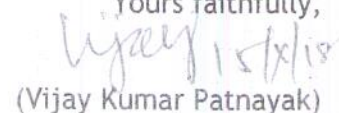 Yours faithfully,
Vijay 15/X/18
(Vijay Kumar Patnayak)